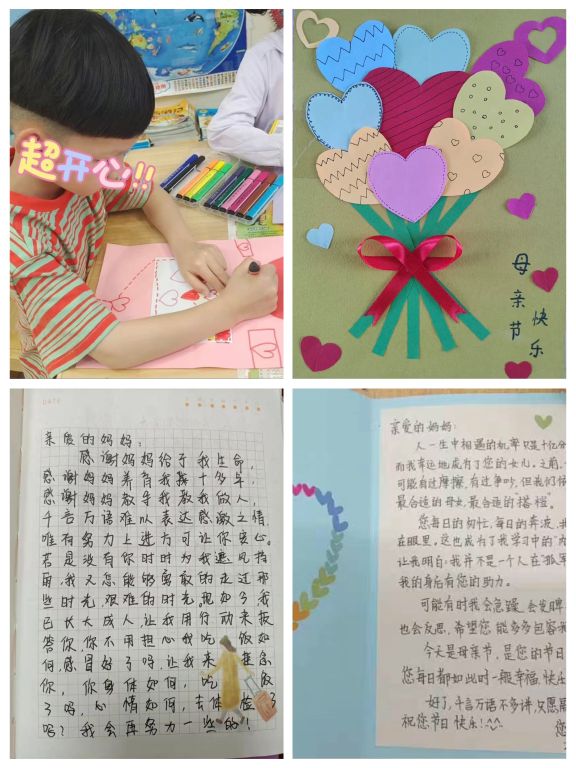 超开心!!
母亲节
快乐
DATE
亲爱的妈妈:
感谢妈妈给于我生命,
感谢妈妈养育我接十多年,
感谢妈妈教导我教我做人,
千言万语难以表达感激之情
唯有努力上进方可让你安心。
若是没有你时时为我遮风挡
雨,我又怎能够勇敢的走过那
些时光,艰难的时光。现如今我
已长大成人让我用行动来报
答你,你不用担心我吃饭如
何,感冒好了吗,让我来挂念
你,你身体如何,吃饭
了吗,心情如何,去体检了
吗?我会再努力一些的!
亲爱的妈妈:
人一生中相遇的机率只是十亿分
而我幸运地成为了您的女儿。之前,
可能有过摩擦,有过争吵,但我们
最合适的母女,最合适的搭档"。
您每日的匆忙,每日的奔波,
在眼里。这也成为了我学习中的"
让我明白:我并不是一个人在"孤军
我的身后有您的助力。
可能有时我会急躁,会发脾
也会反思,希望您能多多包容我
今天是母亲节,是您的节日
您每日都如此时一般幸福,快乐
好了,千言万语不多讲,只愿
祝您节日快乐!^^
您